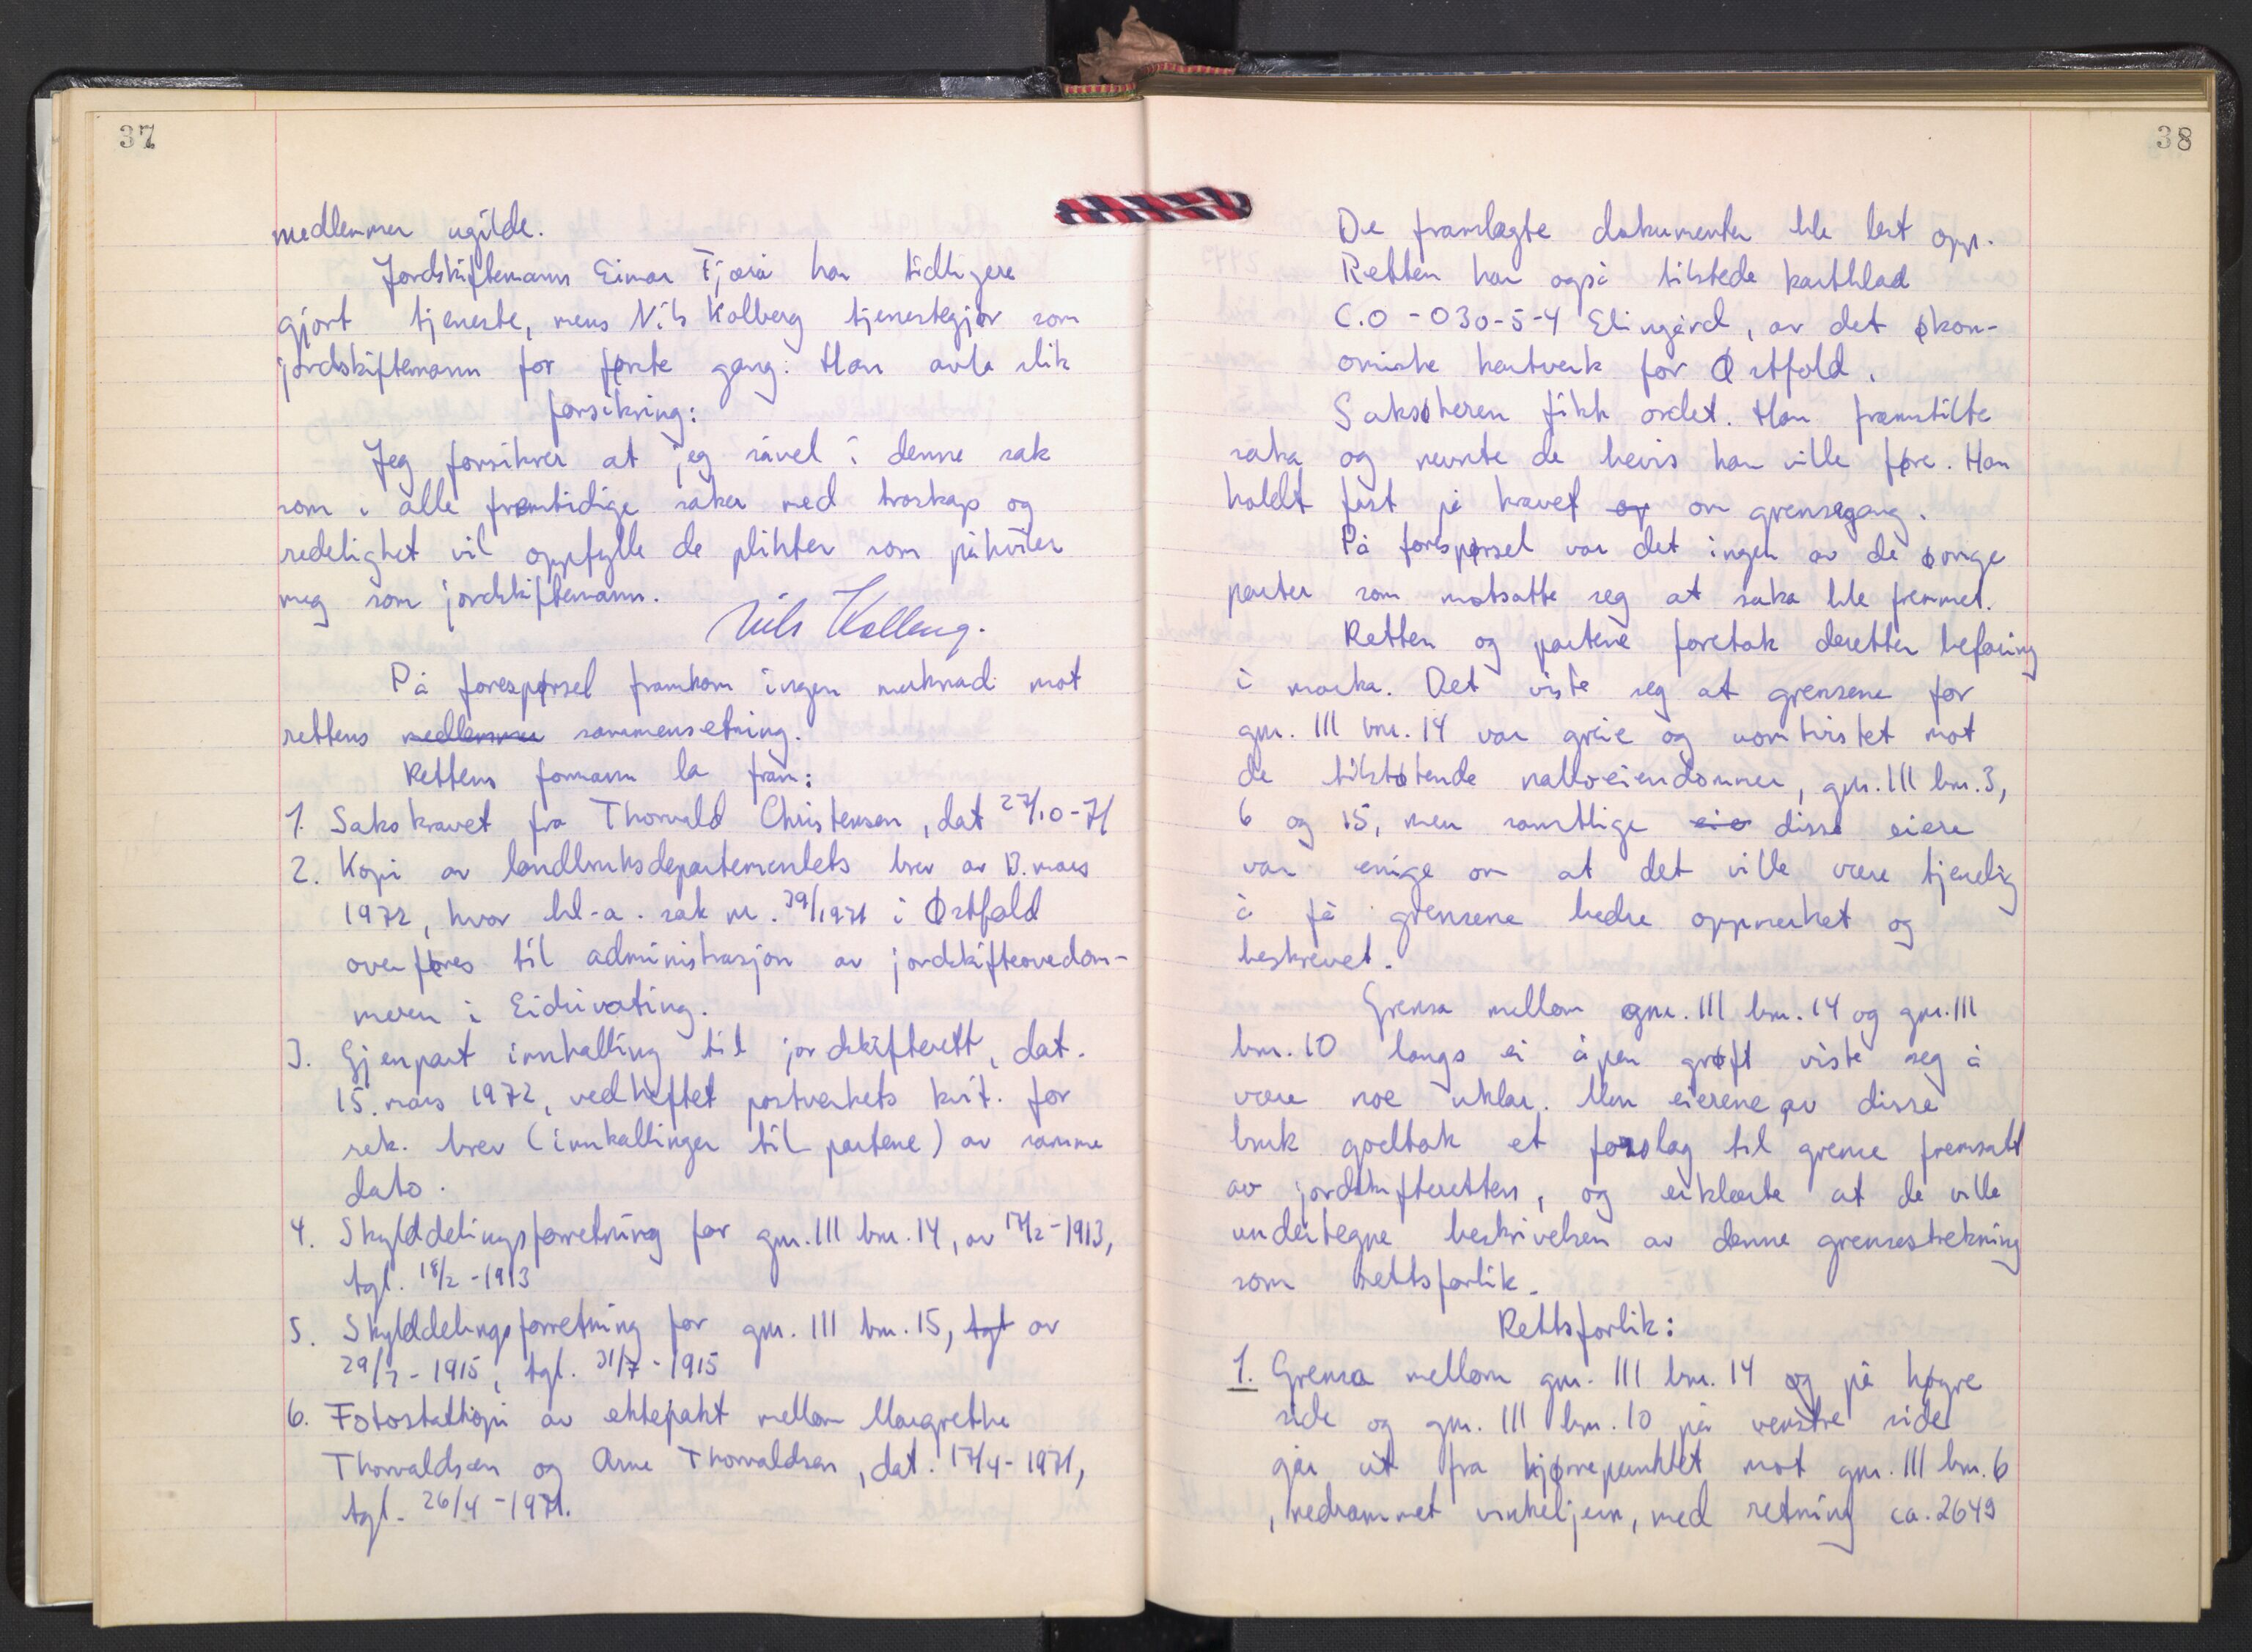 37
medlemmer ugilde.
Jordskiftemann Einar Fjærå har tidligere
gjort tjeneste, mens Nils Kolberg tjenestegjør som
jordskiftemann for første gang. Han avla slik
forsikring:
Jeg forsikrer at jeg såvel i denne sak
som i alle fremtidige saker med troskap og
redelighet vil oppfylle de plikter som påhviler
meg som jordskiftemann.
Nils Kolberg.
På forespørsel framkom ingen merknad mot
rettens medlemmer sammensetning.
Rettens formann la fram:
1. Sakskravet fra Thorvald Christensen, dat 27/10-71
2. Kopi av landbruksdepartementets brev av 13. mars
1972, hvor bl-a. sak nr. 39/1971 i Østfold
overføres til administrasjon av jordskifteovedom-
meren i Eidsivating.
3. Gjenpart innkalling til jordskifterett, dat.
15. mars 1972, vedheftet postverkets kvit. for
rek. brev (innkallinger til partene) av samme
dato.
4. Skylddelingsforretning for gnr. 111 bnr. 14, av 17/2-1913,
tgl. 18/2-1913
5. Skylddelingsforretning for gnr. 111 bnr. 15, tgl av
29/7-1915, tgl. 31/7-1915
6. Fotostatkopi av ektepakt mellom Margrethe
Thorvaldsen og Arne Thorvaldsen, dat. 17/4-1971,
tgl. 26/4-1971.
38
De framlagte dokumenter ble lest opp.
Retten har også tilstede kartblad
C.O-030-5-4 Elingård, av det økon-
omiske kartverk for Østfold.
Saksøkeren fikk ordet. Han framstilte
saka og nevnte de bevis han ville føre. Han
holdt fast på kravet av om grensegang.
På forespørsel var det ingen av de øvrige
parter som motsatte seg at saka ble fremmet.
Retten og partene foretok deretter befaring
i marka. Det viste seg at grensene for
gnr. 111 bnr. 14 var greie og uomtvistet mot
de tilstøtende naboeiendommer, gnr. 111 bnr. 3,
6 og 15, men samtlige eie disse eiere
var enige om at det ville være tjenelig
å få grensene bedre oppmerket og
beskrevet.
Grensa mellom gnr. 111 bnr. 14 og gnr. 111
bnr. 10 langs ei åpen grøft viste seg å
være noe uklar. Men eierene av disse
bruk godtok et forslag til grense fremsatt
av jordskifteretten, og erklærte at de ville
undertegne beskrivelsen av denne grensestrekning
som rettsforlik.
Rettsforlik:
1. Grensa mellom gnr. 111 bnr. 14 og på høgre
side og gnr. 111 bnr. 10 på venstre side
går ut fra hjørnepunktet mot gnr. 111 bnr. 6
, nedrammet vinkeljern, med retning ca. 2649